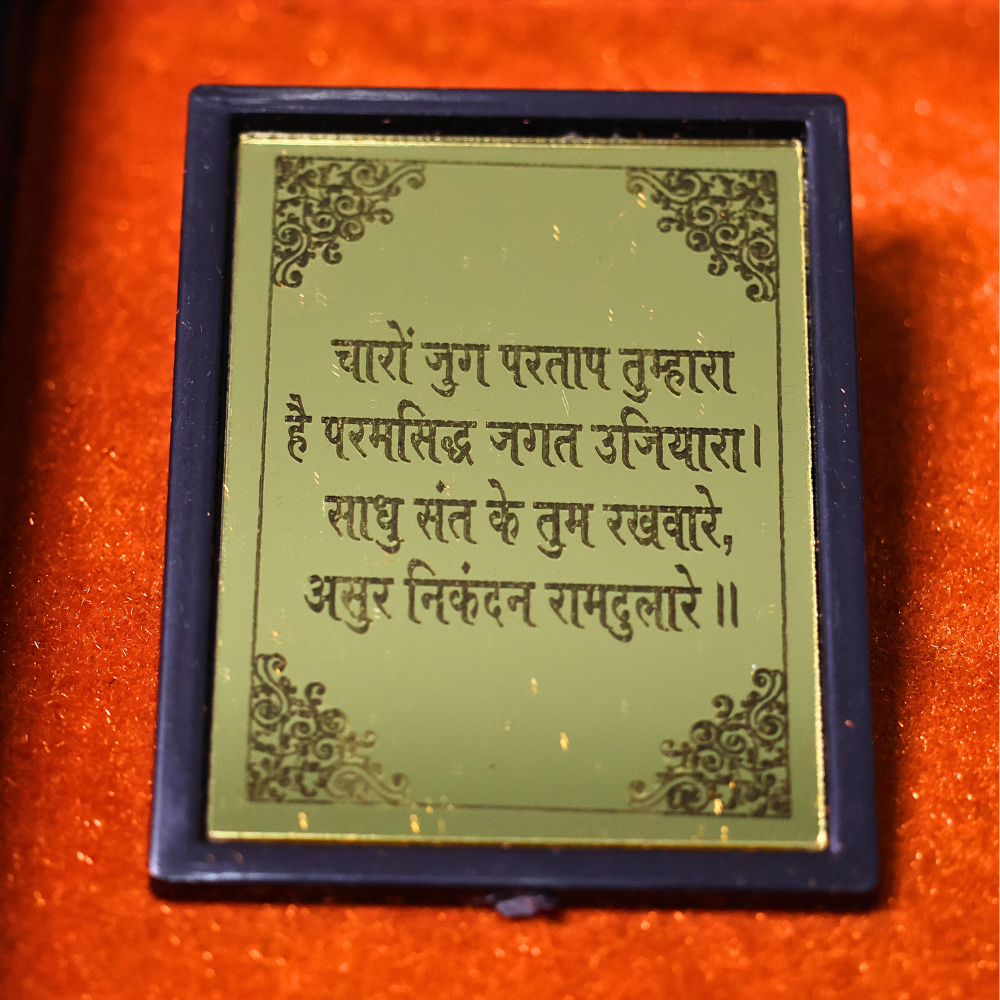 चारों जुग परताप तुम्हारा
है परमसिद्ध जगत उजियारा।
साधु संत के तुम रखवारे,
असुर निकंदन रामदुलारे॥